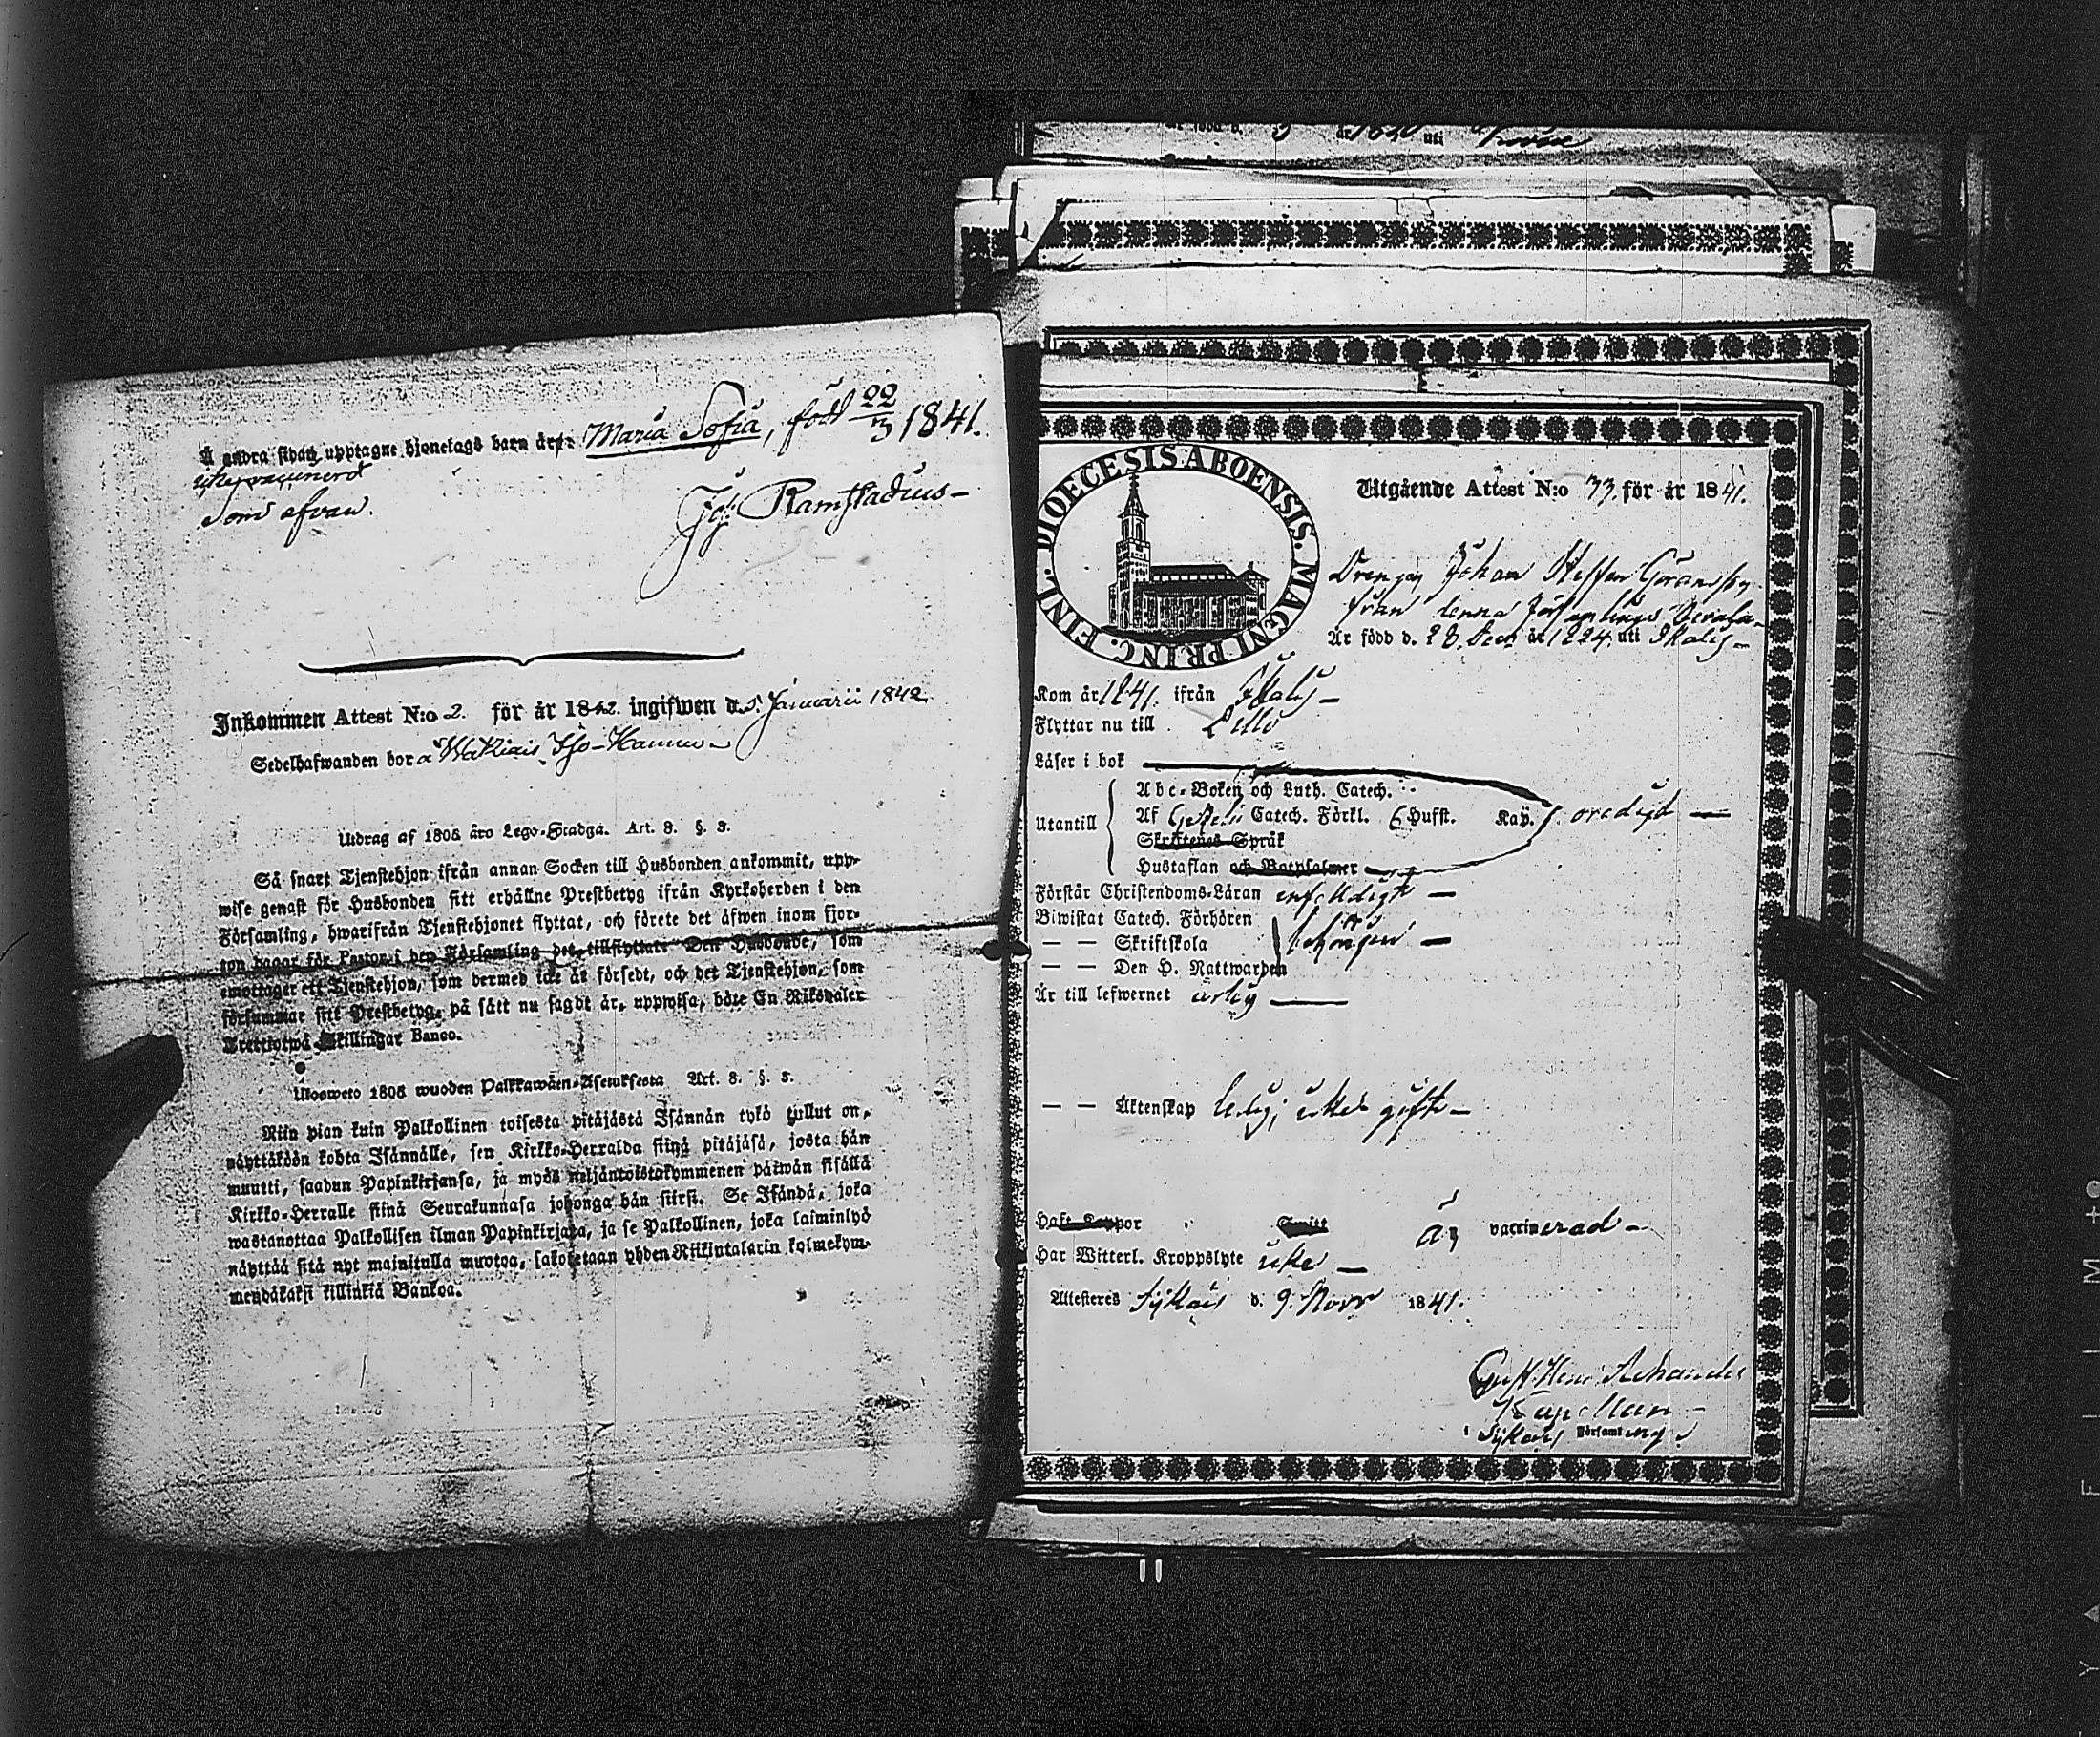 Å andra sidan upptagne hjonelags barn är: Maria Sofia, född 22/3 1841.
icke vaccinerd
som ofvan.
Joh: Ramstadius
Inkommen Attest N:o 2. för år 1842. ingifwen d. 5. Januarii 1842
Sedelhafwanden bor å Iso-Hannu
Utdrag af 1805 års Lego-Stadga. Art. 8. §. 3.
Så snart Tjenstehjon ifrån annan Socken till Husbonden ankommit, upp-
wise genast för Husbonden sitt erhållne Prestbetyg ifrån Kyrkoherden i den
Församling, hwarifrån Tjenstehjonet flyttat, och förete det äfwen inom fjor-
ton dagar för Pastor i den Församling det tillflyttat. Den Husbonde, som
emottager ett Tjenstehjon, som dermed icke är försedt, och det Tjenstehjon, som
försummar sitt Prestbetyg, på sätt nu sagdt är, uppwisa, böte En Riksdaler
Trettiotwå Skillingar Banco.
Ulosweto 1805 wuoden Palkkawäen-Asetuksesta Art. 8. §. 3.
Niin pian kuin Palkollinen toisesta pitäjästä Isännän tykö tullut on,
näyttäköön kohta Isännälle, sen Kirkko-Herralda siinä pitäjäsä, josta hän
muutti, saadun Papinkirjansa, ja myös neljäntoistakymmenen päiwän sisällä
Kirkko-Herralle siinä Seurakunnasa johonga hän siirsi. Se Isändä, joka
wastanottaa Palkollisen ilman Papinkirjata, ja se Palkollinen, joka laiminlyö
näyttää sitä nyt mainitulla muotoa, sakotetaan yhden Riikintalarin kolmekym-
mendäkaksi killinkiä Bankoa.
är född d. 3 1820 uti
DIOECESIS ABOENSIS. MAGNI PRINC. FINL.
Utgående Attest N:o 33. för år 1841.
Drengen Johan Steffan Göransson
från denna församlings
Är född d. 28. Decr år 1824. uti Ikalis
Kom år 1841. ifrån Ikalis
Flyttar nu till
Läser i bok
Abc-Boken och Luth. Catech.
Utantill Af Catech. Förkl. 6 Hufst. Kap. oredigt
Skriftenes Språk
Hustaflan och Botpsalmer
Förstår Christendoms-Läran enfaldigt
Biwistat Catech. Förhören
— — Skriftskola behörigen
— — Den H. Nattwarden
Är till lefwernet ärlig
— — Äktenskap ledig; icke gift
Haft Koppor är vaccinerad
Har Witterl. Kroppslyte icke
Attesteres d. 9. Novr 1841.
Församling